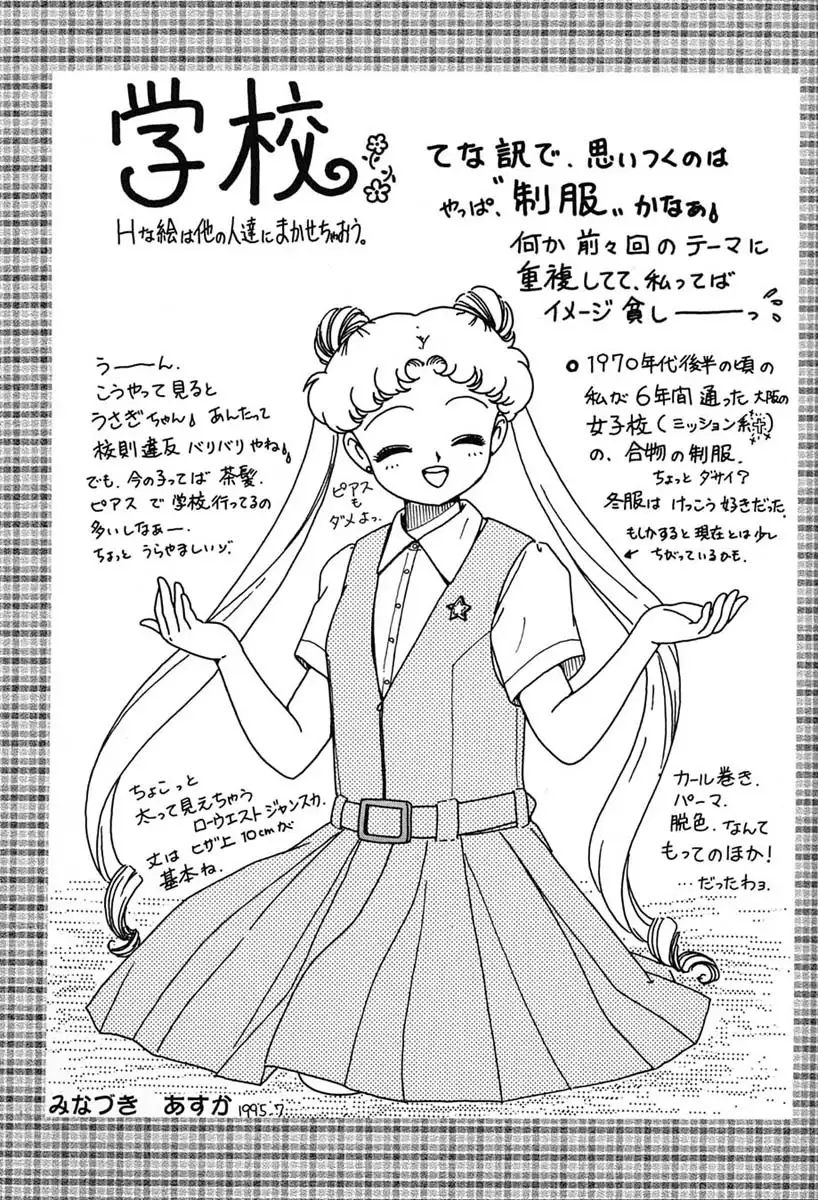 学校
Hな絵は他の人達にまかせちゃおう。
てな訳で、思いつくのは
やっぱ、〝制服〟かなぁ
何か前々回のテーマに
重複してて、私ってば
イメージ貧し――っ
うーん。
こうやって見ると
うさぎちゃん、あんたって
校則違反バリバリやね
でも、今の子ってば茶髪、
ピアスで学校行ってるの
多いしなぁー
ちょっとうらやましいゾ。
ピアス
も
ダメよっ。
1970年代後半の頃の
私が6年間通った大阪の
女子校(ミッション系)
の、合物の制服。
ちょっとダサイ?
冬服はけっこう好きだった。
もしかすると現在とは少し
ちがっているかも。
ちょこっと
太って見えちゃう
ローウエストジャンスカ。
丈はヒザ上10cmが
基本ね。
カール巻き、
パーマ、
脱色、なんて
もってのほか!
…だったわョ。
みなづき あすか 1995.7